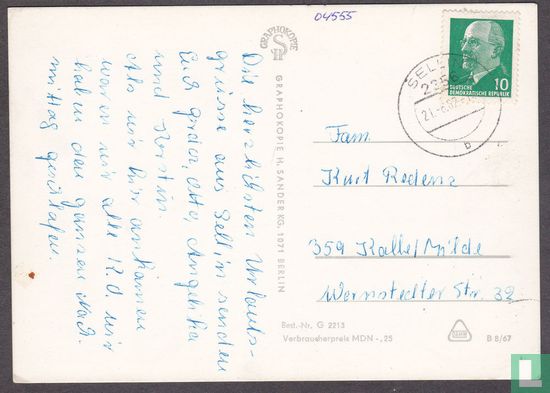 04555
GRAPHOKOPIE
H S
GRAPHOKOPIE H. SANDER KG, 1071 BERLIN
Die herzlichsten Urlaubs-
grüsse aus Sellin senden
Euch Angelika
und Kerstin.
Als wir hier ankamen
waren wir alle K.O. wir
haben den ganzen Nach
mittag geschlafen.
SELLIN
2356
b
10
DEUTSCHE
DEMOKRATISCHE REPUBLIK
Fam.
Kurt Redenz
359 Kalbe/Milde
Wernstedter Str. 32
Best.-Nr. G 2213
Verbraucherpreis MDN -,25
B 8/67
catawiki